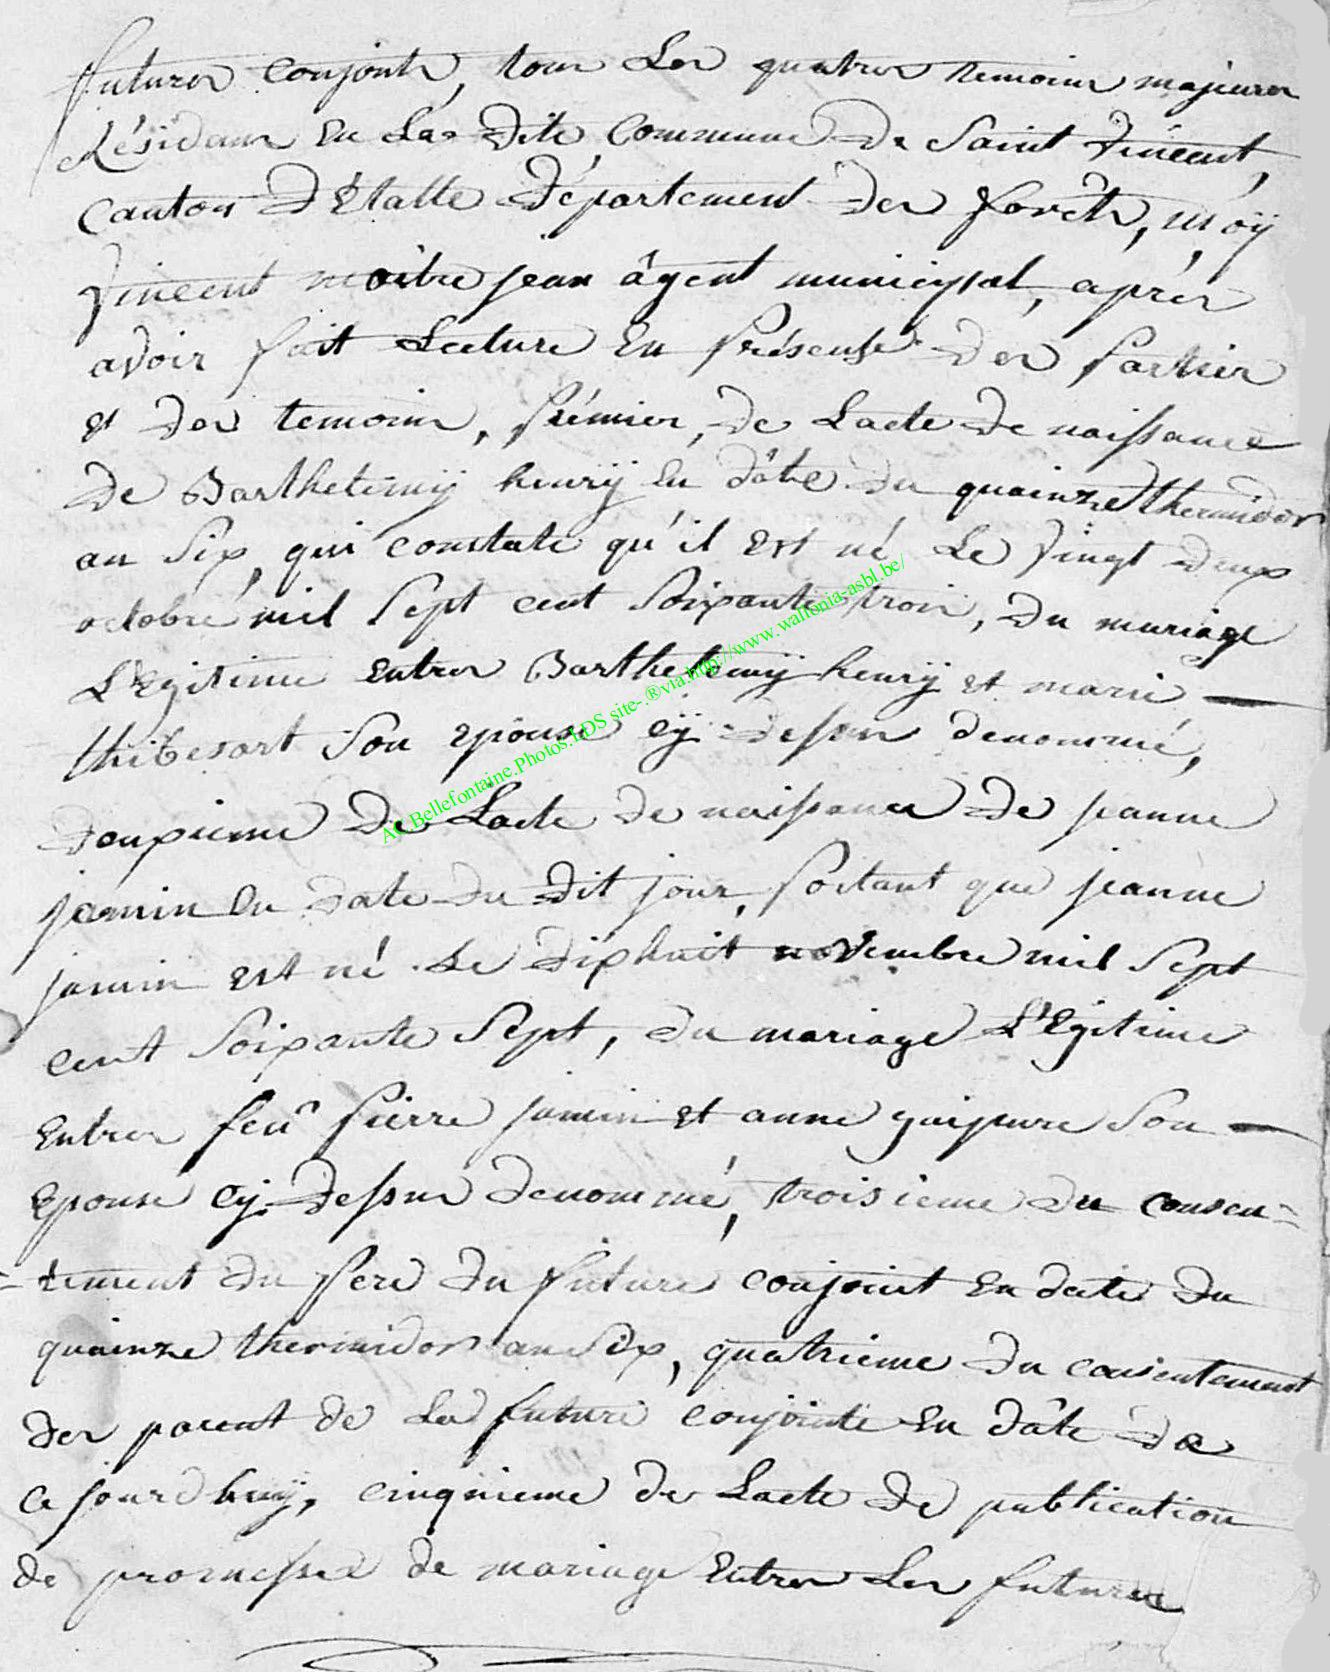 futures conjoints, tous Les quatres temoins majeures
Résidans En La dite Commune De Saint Vincent,
Canton D'Etalle Département Des forêts, moÿ
Vincent maître jean âgent municipal, après
avoir fait Lecture En Présense des Parties
et Des temoins, Prémier, De Lacte De naissance
De Barthelemÿ henrÿ En dâte Du quainze thermidor
an Six, qui constate qu'il Est né Le Vingt Deux
octobre mil Sept cent Soixante trois, Du mariage
L'Egitime Entres Barthelemÿ henrÿ et marie
thibesart Son epouse cÿ Dessus denommé,
Deuxieme De Lacte De naissance De jeanne
jamin En Date Du Dit jour, Portant que jeanne
jamin est né Le Dixhuit novembre mil Sept
cent Soixante Sept, Du mariage L'Egitime
Entres feû Pierre jamin et anne Son
Epouse cÿ Dessus Denommé, troisieme Du consen=
=tement Du Pere Du future conjoint En date Du
quainze thermidor an Six, quatrieme Du consentement
Des parent de La future conjointe En dâte De
ce jourdhuÿ, cinquieme De Lacte De publication
de promesses de mariage Entres Les futures
AC.Bellefontaine.Photos.LDS site-.®via.http://www.wallonia-asbl.be/